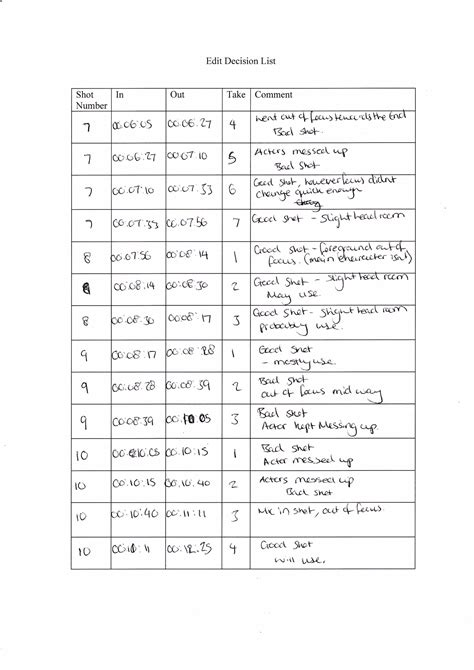 Edit Decision List
Shot Number In Out Take Comment
7 00:06:05 00:06:27 4 Went out of focus towards the End
Bad shot.
7 00:06:27 00:07:10 5 Actors messed up
Bad Shot
7 00:07:10 00:07:33 6 Good Shot, however focus didnt
change quick enough
7 00:07:33 00:07:56 7 Good shot - Slight head room
8 00:07:56 00:08:14 1 Good shot - foreground out of
focus. (main character isnt)
8 00:08:14 00:08:30 2 Good Shot - Slight head room
May use.
8 00:08:30 00:08:17 3 Good Shot - Slight head room
probably use.
9 00:08:17 00:08:28 1 Good Shot
- mostly use.
9 00:08:28 00:08:39 2 Bad shot
out of focus mid way
9 00:08:39 00:10:05 3 Bad Shot.
Actor kept Messing up.
10 00:10:05 00:10:15 1 Bad Shot
Actor messed up
10 00:10:15 00:10:40 2 Actors messed up
Bad Shot
10 00:10:40 00:11:11 3 Mic in shot, out of focus.
10 00:10:11 00:12:25 4 Good Shot
will use.